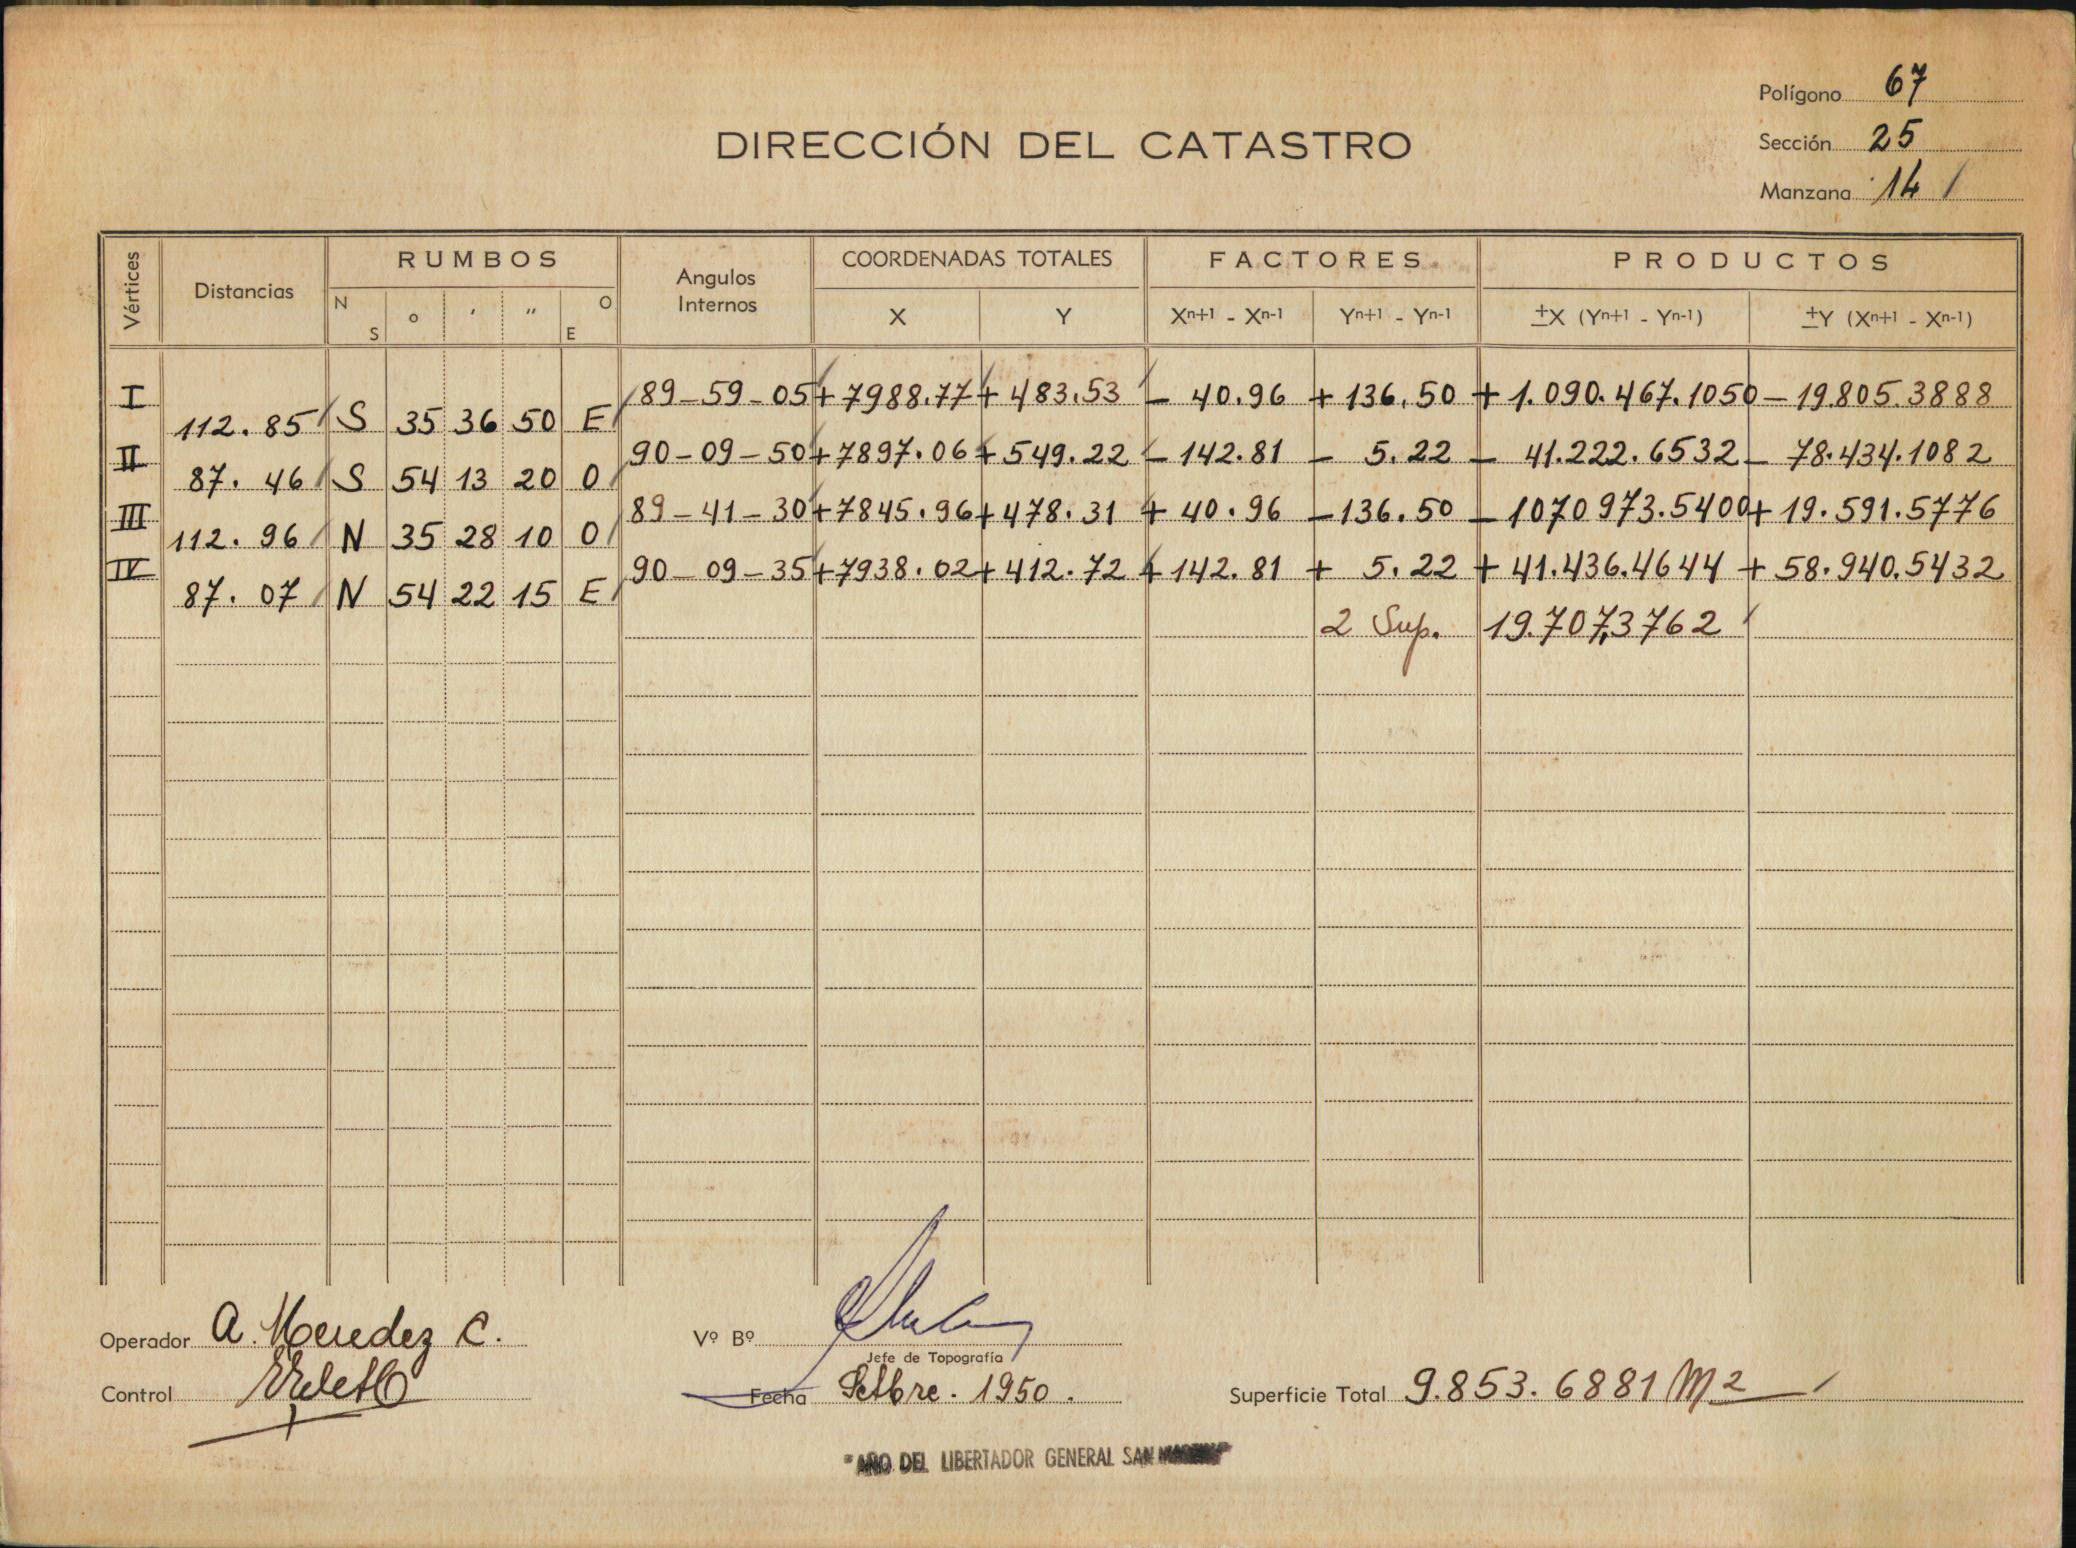 Polígono 67
DIRECCIÓN DEL CATASTRO
Sección 25
Manzana 14 /
Vértices Distancias RUMBOS Angulos Internos COORDENADAS TOTALES FACTORES PRODUCTOS
N S ° ' " O E X Y Xn+1 - Xn-1 Yn+1 - Yn-1 ±X (Yn+1 - Yn-1) ±Y (Xn+1 - Xn-1)
I 89-59-05 +7988.77 +483.53 - 40.96 +136.50 +1.090.467.1050 -19.805.3888
112.85 S 35 36 50 E
II 90-09-50 +7897.06 +549.22 -142.81 - 5.22 - 41.222.6532 - 78.434.1082
87.46 S 54 13 20 O
III 89-41-30 +7845.96 +478.31 + 40.96 -136.50 -1070973.5400 +19.591.5776
112.96 N 35 28 10 O
IV 90-09-35 +7938.02 +412.72 +142.81 + 5.22 +41.436.4644 +58.940.5432
87.07 N 54 22 15 E
2 Sup. 19.707,3762
Operador A. Menedez C.
Vº Bº
Jefe de Topografía
Control
Fecha Setbre. 1950.
Superficie Total 9.853.6881 M2
"AÑO DEL LIBERTADOR GENERAL SAN MARTIN"